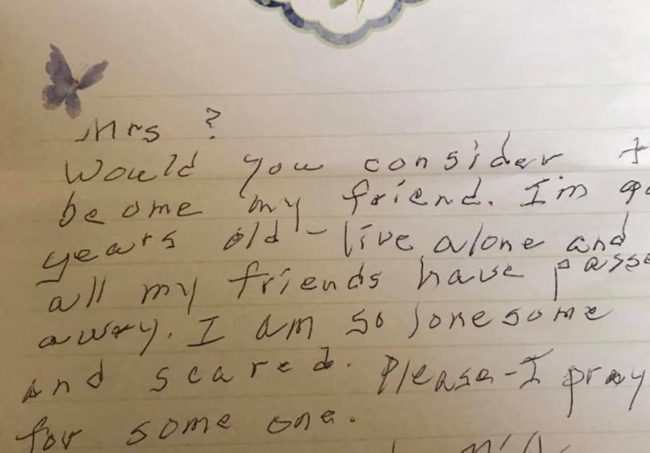 Mrs ?
Would you consider
be ome my friend. I'm
years old - live alone and
all my friends have
away. I am so lonesome
And scared. Please - I pray
for some one.